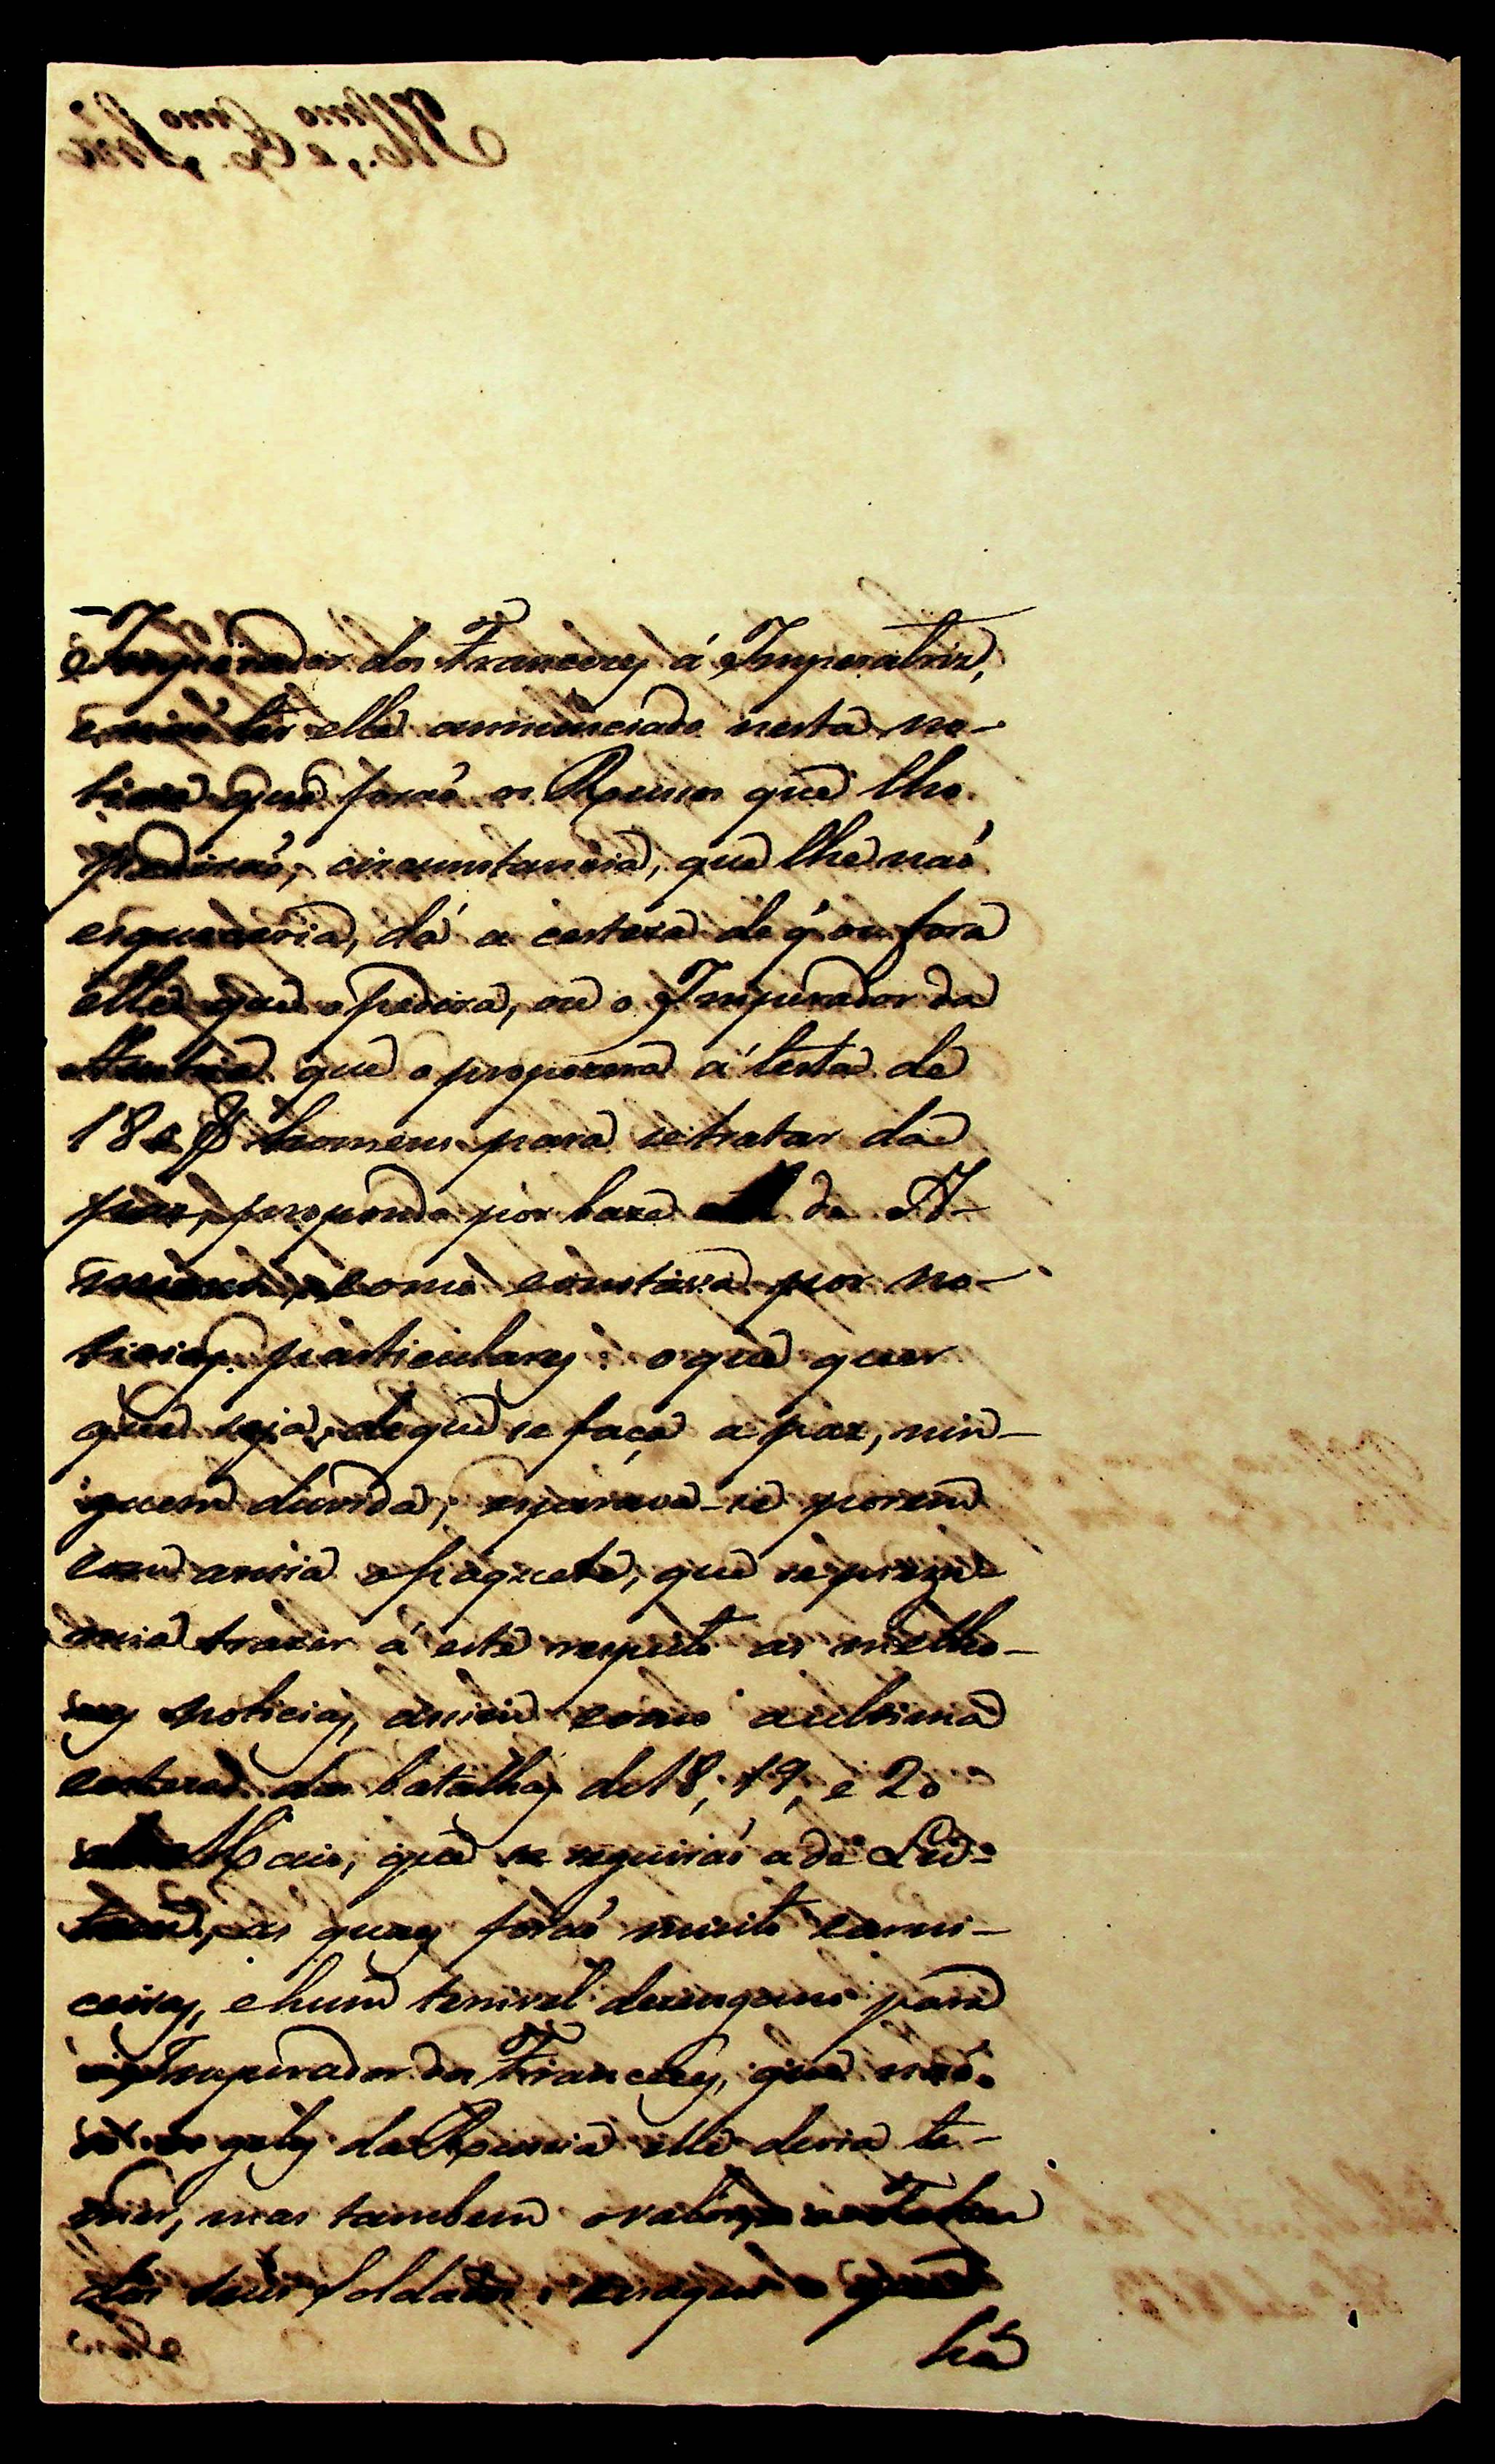 Imperador dos Francezes á Imperatriz,
e não ter elle annunciado nesta no-
ticia que foraõ os Russos que lho
pediraõ, circumstancia, que lhe naõ
esqueceria, dá a certeza de q' ou fora
elle que o pedira, ou o Imperador da
Austria que o propozera á testa de
homens para se tratar da
paz, propondo por baze da A-
como constava por no-
ticias particulares: o que quer
que seja, de que se faça a paz, nin-
guem duvida; esperava-se porem
com ancia o paquete, que se prezu-
mia trazer á este respeito as melho-
res noticias, assim como a ultima
certeza das batalhas de 18, 19, e 20
de Maio, que se seguiraõ a de Lut-
zen, as quaes foraõ muito carni-
ceiras, e hum terrivel desengano para
o Imperador dos Francezes, que naõ
só os gelos da Russia elle devia te-
mer, mas tambem o valor,
dos seus soldados;
há